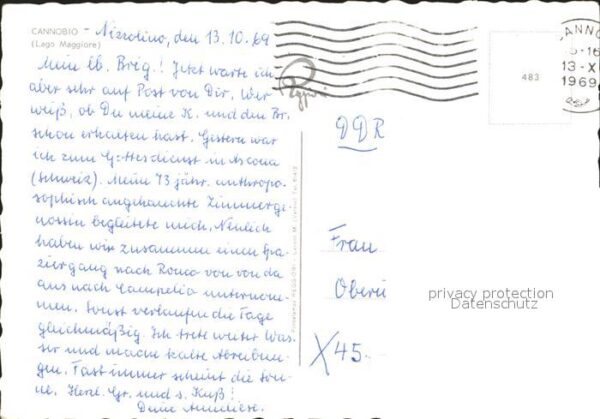 CANNOBIO - Nizzolino, den 13.10.69
(Lago Maggiore)
Mein lb. Brig.! Jetzt warte ich
aber sehr auf Post von Dir. Wer
weiß, ob Du meine K. und den Br.
schon erhalten hast. Gestern war
ich zum Gottesdienst in Ascona
(Schweiz). Meine 73 jähr. anthropo-
sophisch angehauchte Zimmerge-
nossin begleitete mich. Neulich
haben wir zusammen einen Spa-
ziergang nach Ronco von von da
aus nach unternom-
men. Sonst verlaufen die Tage
gleichmäßig. Ich trete weiter Was-
ser und mache kalte Abreibun-
gen. Fast immer scheint die Son-
ne. Herzl. Gr. und s. Kuß!
Deine Anneliese.
13-X
1969
483
DDR
Frau
privacy protection
Datenschutz
X45.